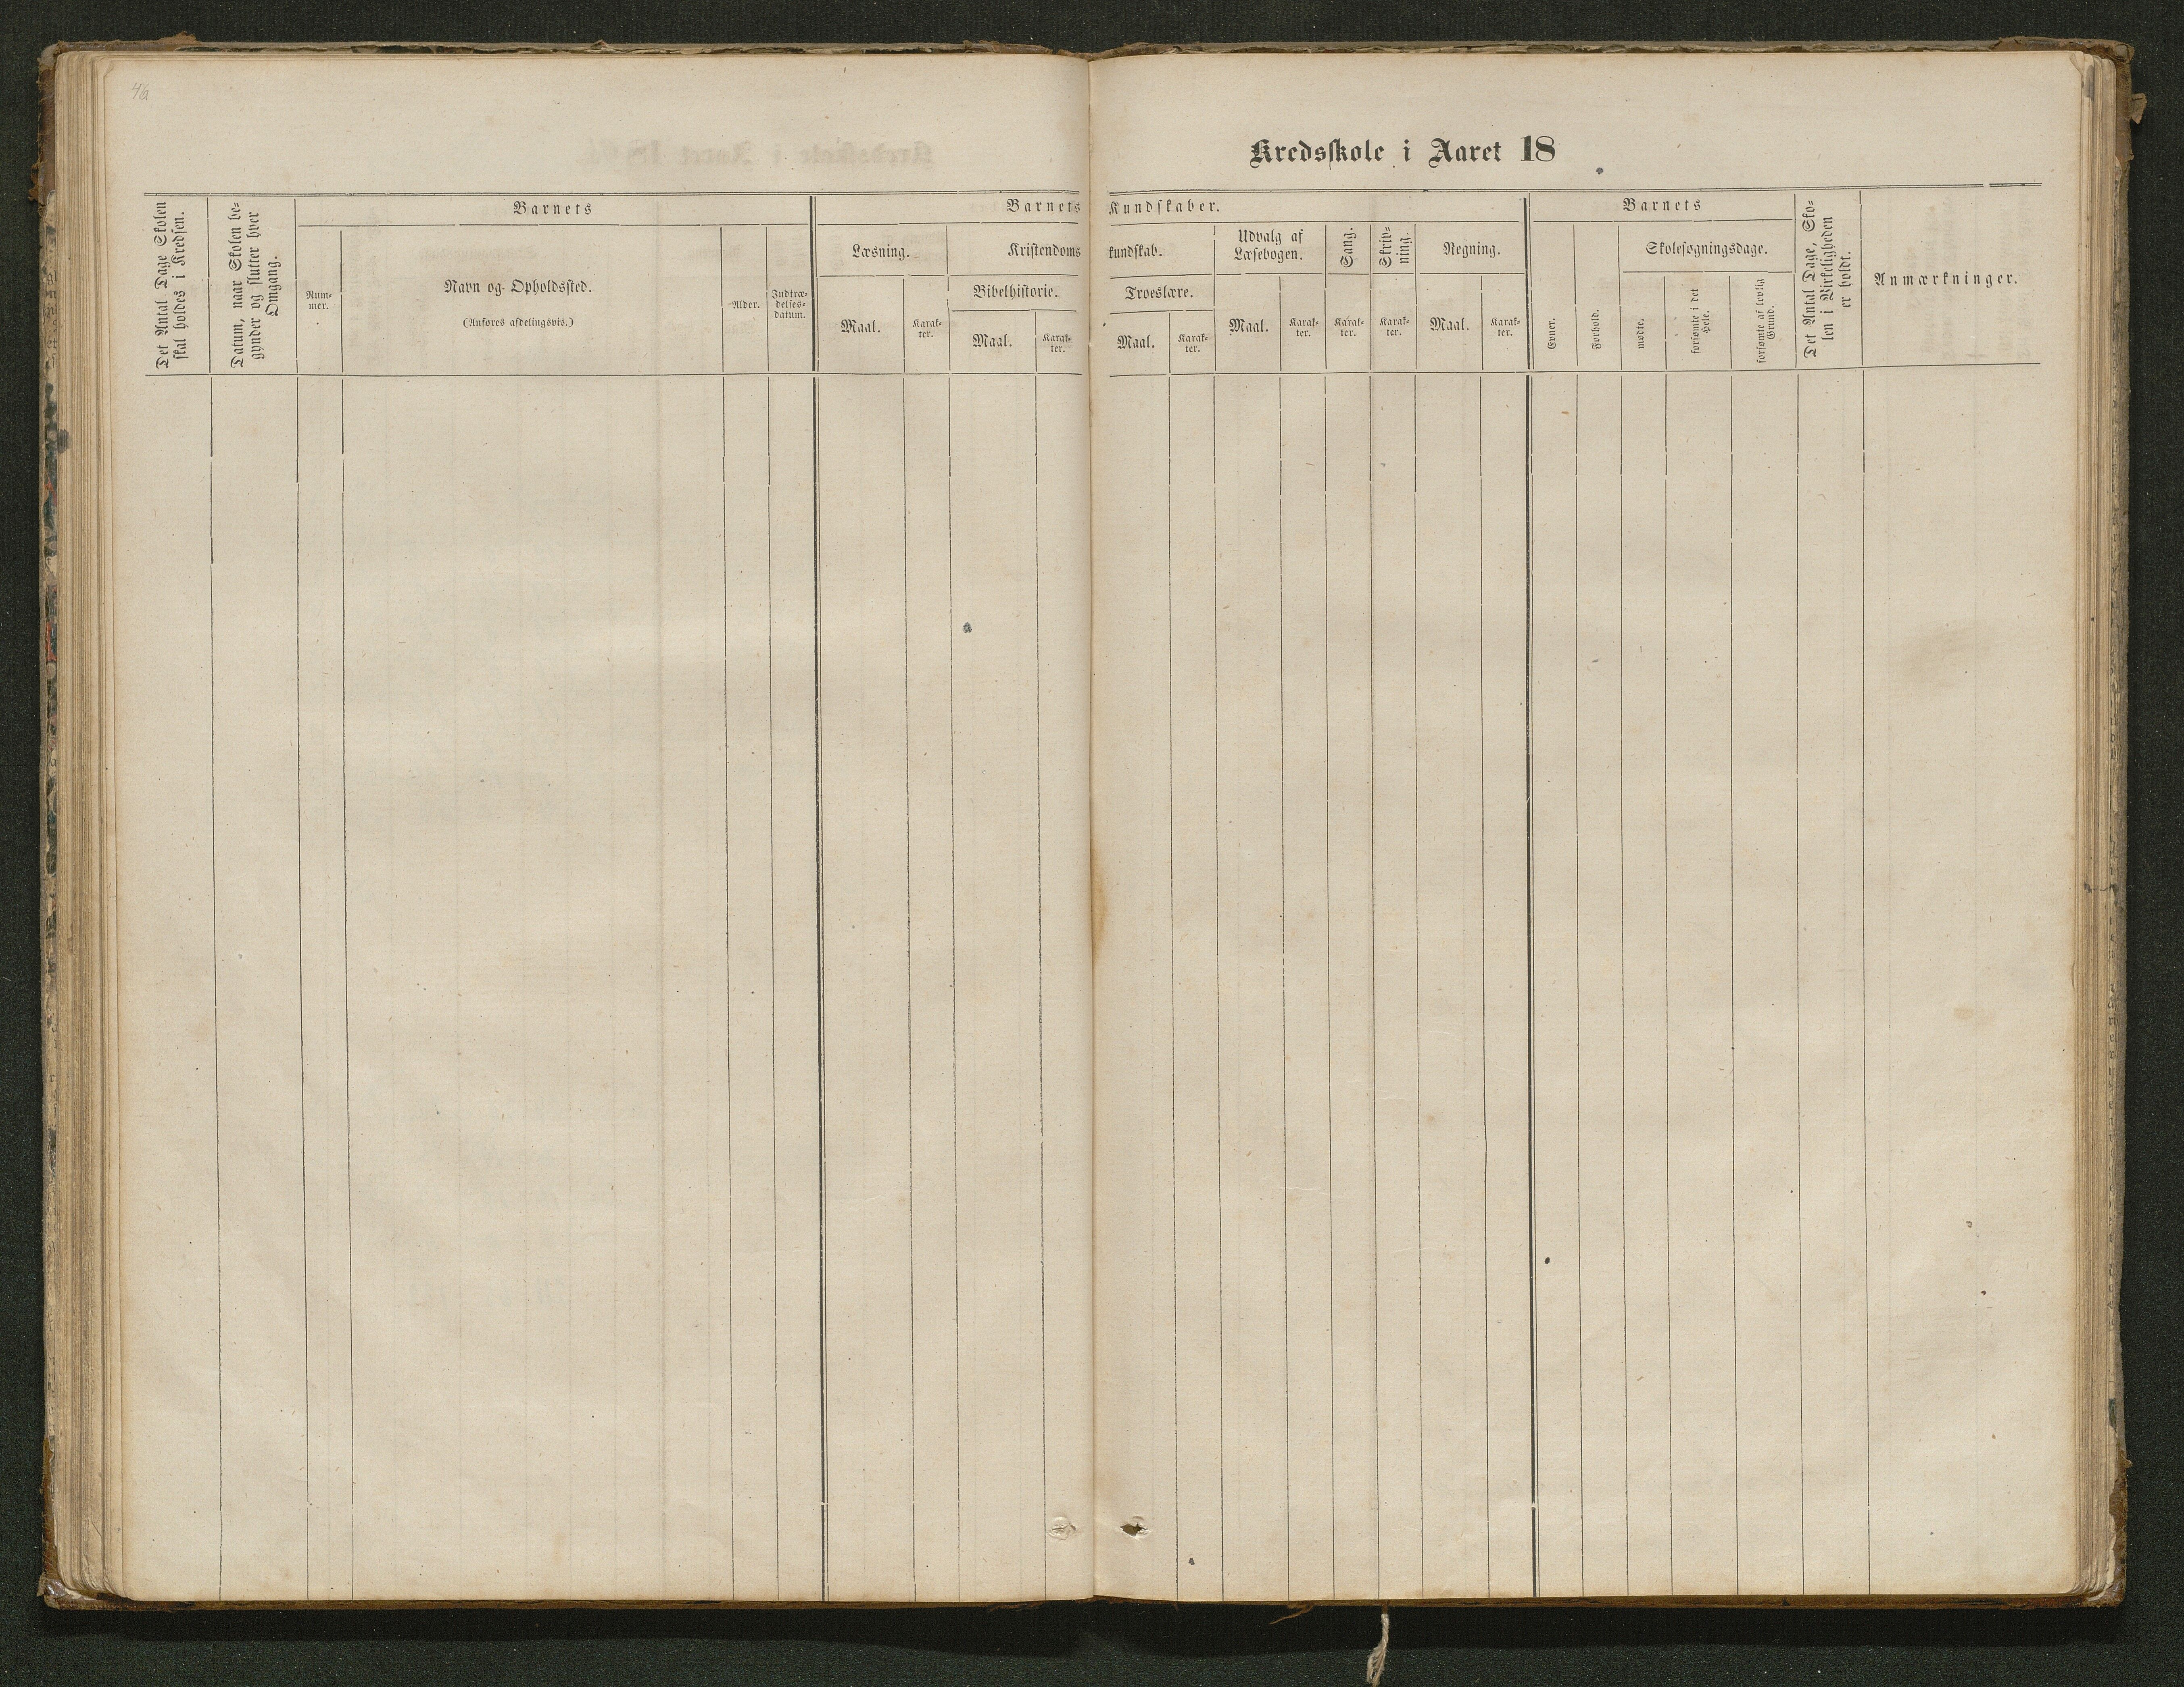 4a
Kredsskole i Aaret 18
Det Antal Dage Skolen
skal holdes i Kredsen.
Datum, naar Skolen be-
gynder og slutter hver
Omgang.
Barnets
Num-
mer.
Navn og Opholdssted.
(Anføres afdelingsvis.)
Alder.
Indtræ-
delses-
datum.
Barnets Kundskaber.
Læsning.
Maal.
Karak-
ter.
Kristendoms kundskab.
Bibelhistorie.
Maal.
Karak-
ter.
Troeslære.
Maal.
Karak-
ter.
Udvalg af
Læsebogen.
Maal.
Karak-
ter.
Sang.
Karak-
ter.
Skriv-
ning.
Karak-
ter.
Regning.
Maal.
Karak-
ter.
Barnets
Evner.
Forhold.
Skolesøgningsdage.
mødte.
forsømte i det
Hele.
forsømte af lovlig
Grund.
Det Antal Dage, Sko-
len i Virkeligheden
er holdt.
Anmærkninger.